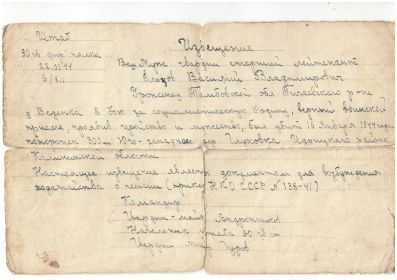 Штаб
90 гв. стр. полка
22.01.44
Извещение
Ваш муж гвардии старший лейтенант
Василий Владимирович
Уроженец Тамбовской обл. р-на
д Веденка в бою за социалистическую родину, верный воинской
присяге проявив геройство и мужество, был убит 15 января 1944 года
похоронен 300 м юго-западнее дер Идрицкого района
Калининской области
Настоящее извещение является документом для возбуждения
ходатайства о пенсии (приказ НКО СССР № 138-41)
Командир
Гвардии-майор
Начальник штаба 90 гв сп
Гвардии